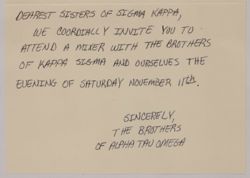 DEAREST SISTERS OF SIGMA KAPPA,
WE COORDIALLY INVITE YOU TO
ATTEND A MIXER WITH THE BROTHERS
OF KAPPA SIGMA AND OURSELVES THE
EVENING OF SATURDAY NOVEMBER 11th.
SINCERELY,
THE BROTHERS
OF ALPHA TAU OMEGA